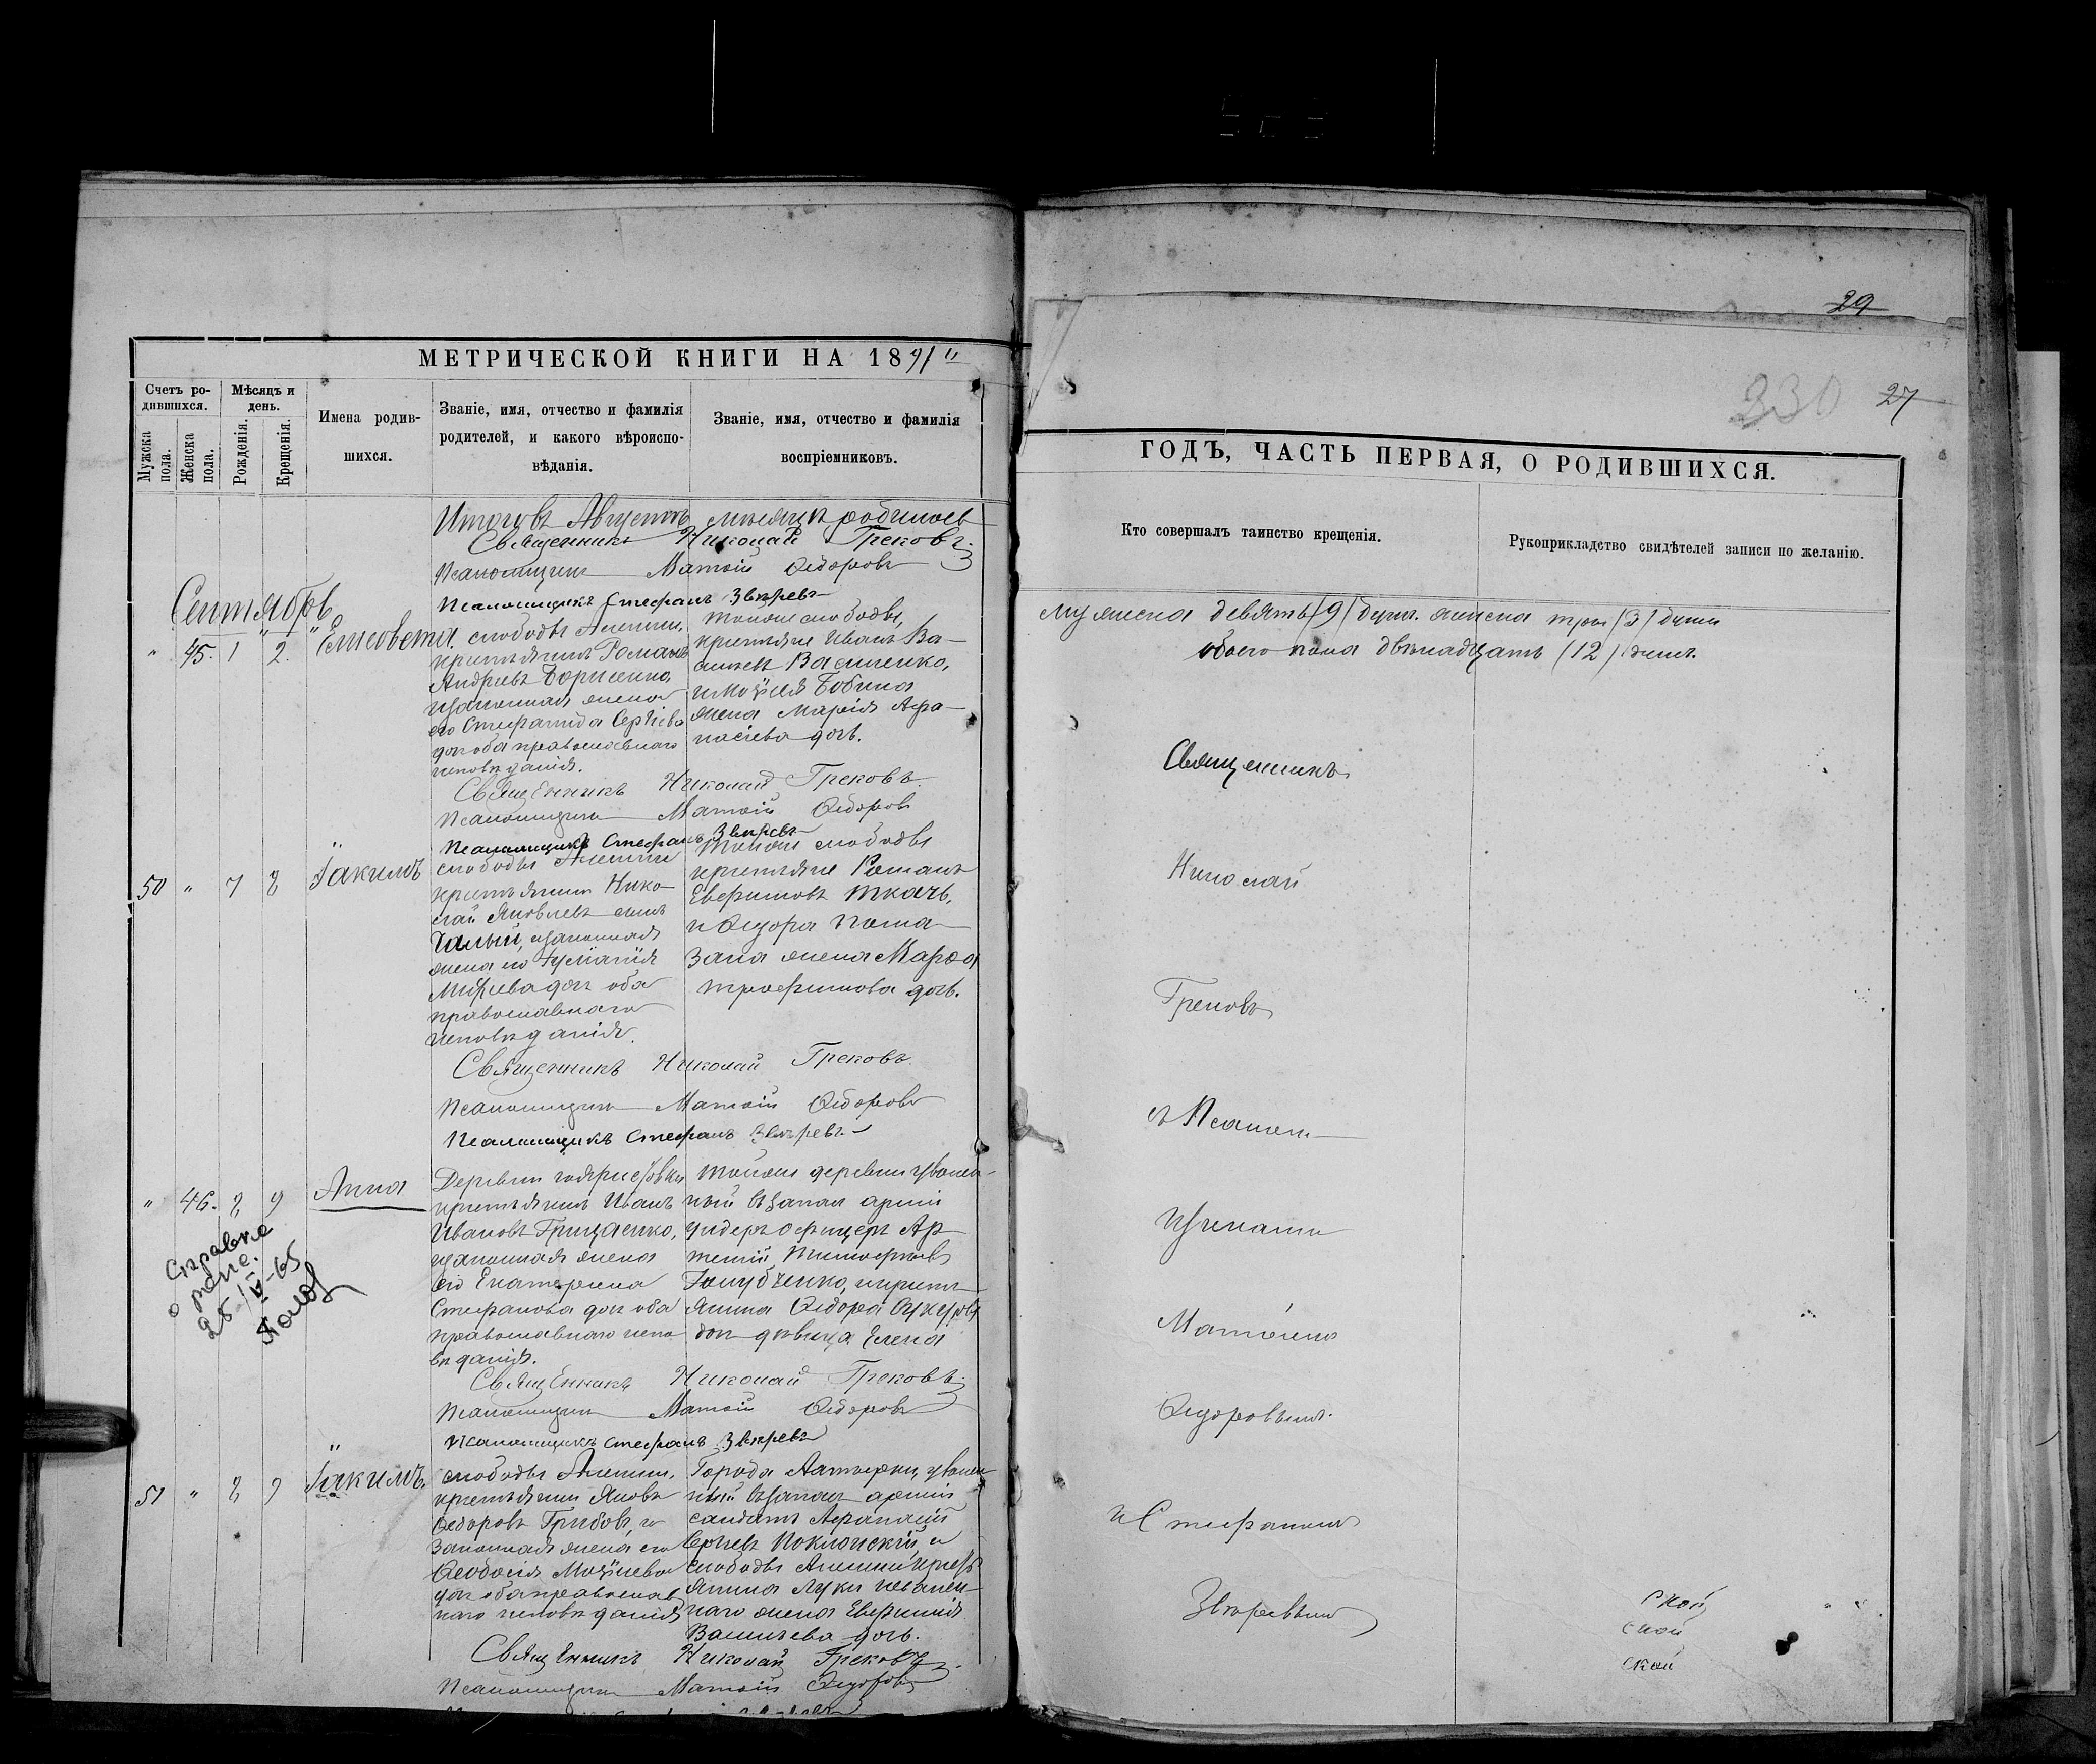 МЕТРИЧЕСКОЙ КНИГИ НА 1891
Счетъ ро-
дившихся.
Мужеска
пола.
Женска
пола.
Мѣсяцъ и
день.
Рожденія.
Крещенія.
Имена родив-
шихся.
Званіе, имя, отчество и фамилія
родителей, и какого вѣроиспо-
вѣданія.
Званіе, имя, отчество и фамилія
воспріемниковъ.
Итого въ Августѣ мѣсяцѣ родилось
Священникъ Николай Грековъ.
Псаломщикъ Матѳій Ѳедоровъ
Псаломщикъ Стефанъ Звѣревъ
Сентябрь
" 45. 1 2.
Елисовета.
слободы Алешни,
крестьянинъ Романъ
Андреевъ Борисенко,
и законная жена
его Стефанида Сергіева
доч оба православнаго
исповѣданія.
Тойже слободы,
крестьяне Иванъ Ва-
сильев Василенко,
и Моѵсея Бобина
жена Марія Афа-
насіева дочь.
Священникъ Николай Грековъ
Псаломщикъ Матѳій Ѳедоровъ
Псаломщикъ Стефанъ Звѣревъ
50 " 7 8
Іакимъ
слободы Алешни
крестьянинъ Нико-
лай Яковлевъ сынъ
Чалый, и законная
жена его
доч оба
православнаго
исповѣданія.
Тойже слободы
крестьяне Романъ
Евфимовъ Ткачъ,
и Ѳедора
жена Марѳа
Трофимова дочь.
Священникъ Николай Грековъ
Псаломщикъ Матѳій Ѳедоровъ
Псаломщикъ Стефанъ Звѣревъ
" 46. 8 9
Анна
Деревни
крестьянинъ Иванъ
Ивановъ Грищенко,
и законная жена
его Екатерина
Стефанова доч оба
православнаго испо
вѣданія.
Тойже деревни уволен-
ный въ запас арміи
ундеръ офицеръ Ар-
темій Тимофеевъ
Голубченко, и крест-
янина Ѳедора
доч дѣвица Елена
Справка
о рожд.
25/IV-65
Священникъ Николай Грековъ
Псаломщикъ Матѳій Ѳедоровъ
Псаломщикъ Стефанъ Звѣревъ
51 " 8 9
Іакимъ.
слободы Алешни,
крестьянин Яковъ
Ѳедоровъ Грибов, и
законная жена его
Ѳеодосія Моѵсиева
доч оба православ
наго исповѣданія
Города Ахтырки, уволен
ный въ запас арміи
солдатъ Афанасій
Сергіев Поклонскій, и
слободы Алешни крест
янина Луки
наго жена Евфимія
Васильева дочь.
Священникъ Николай Грековъ
Псаломщикъ Матѳій Ѳедоровъ
29
330 27
ГОДЪ, ЧАСТЬ ПЕРВАЯ, О РОДИВШИХСЯ.
Кто совершалъ таинство крещенія.
Рукоприкладство свидѣтелей записи по желанію.
мужеска девять (9) душ. женска три (3) души
обоего пола двѣнадцать (12) душ.
Священникъ
Николай
Грековъ
съ Псалом-
щиками
Матѳіемъ
Ѳедоровымъ
и Стефаномъ
Звѣревымъ
ской
ской
ской